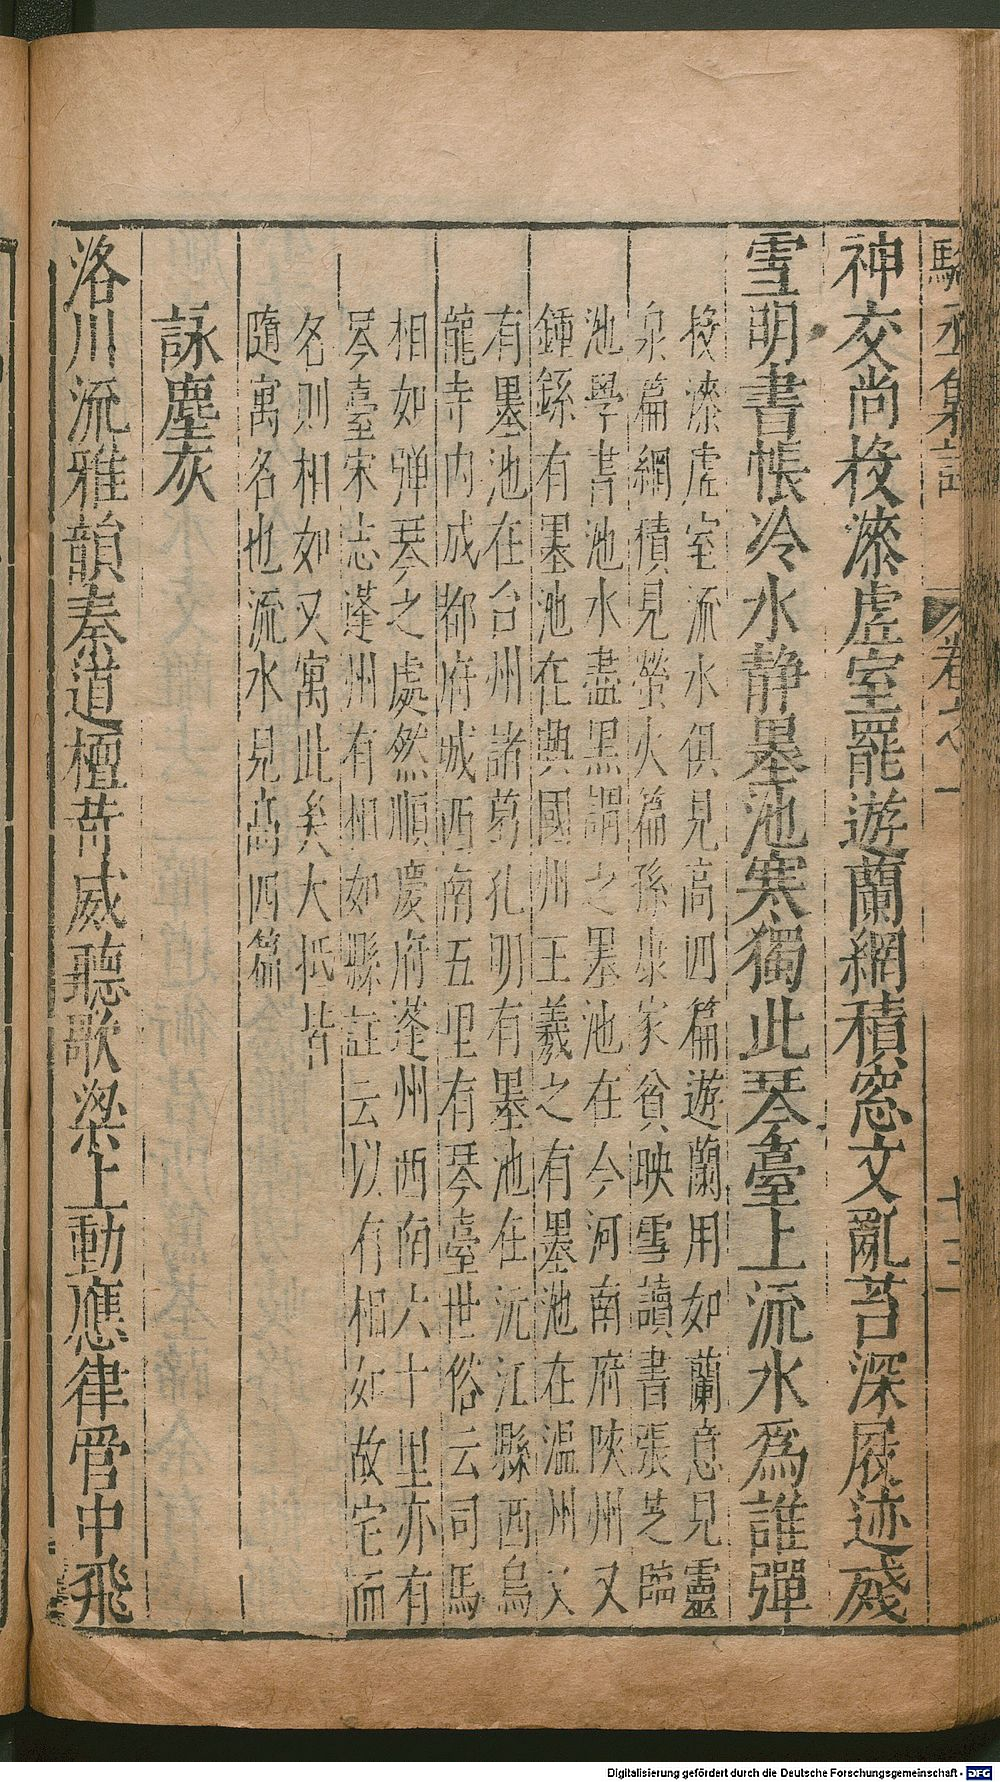 駱丞集註 卷之一 十三
神交尚投漆虛室罷遊蘭網積窓文亂苔深屐迹殘
雪明書帳冷水静墨池寒獨此琴臺上流水為誰彈
投漆虛室流水俱見高四篇遊蘭用如蘭意見靈
泉篇網積見螢火篇孫康家貧映雪讀書張芝臨
池學書池水盡黑謂之墨池在今河南府陜州又
鍾繇有墨池在興國州王羲之有墨池在温州又
有墨池在台州諸葛孔明有墨池在沅江縣西烏
龍寺内成都府城西南五里有琴臺世俗云司馬
相如弹琴之處然順慶府蓬州西陌六十里亦有
琴臺宋志蓬州有相如縣註云以有相如故宅而
名則相如又寓此矣大抵皆
隨寓名也流水見高四篇
詠塵灰
洛川流雅韻秦道檀苛威聽歌梁上動應律管中飛
Digitalisierung gefördert durch die Deutsche Forschungsgemeinschaft - DFG